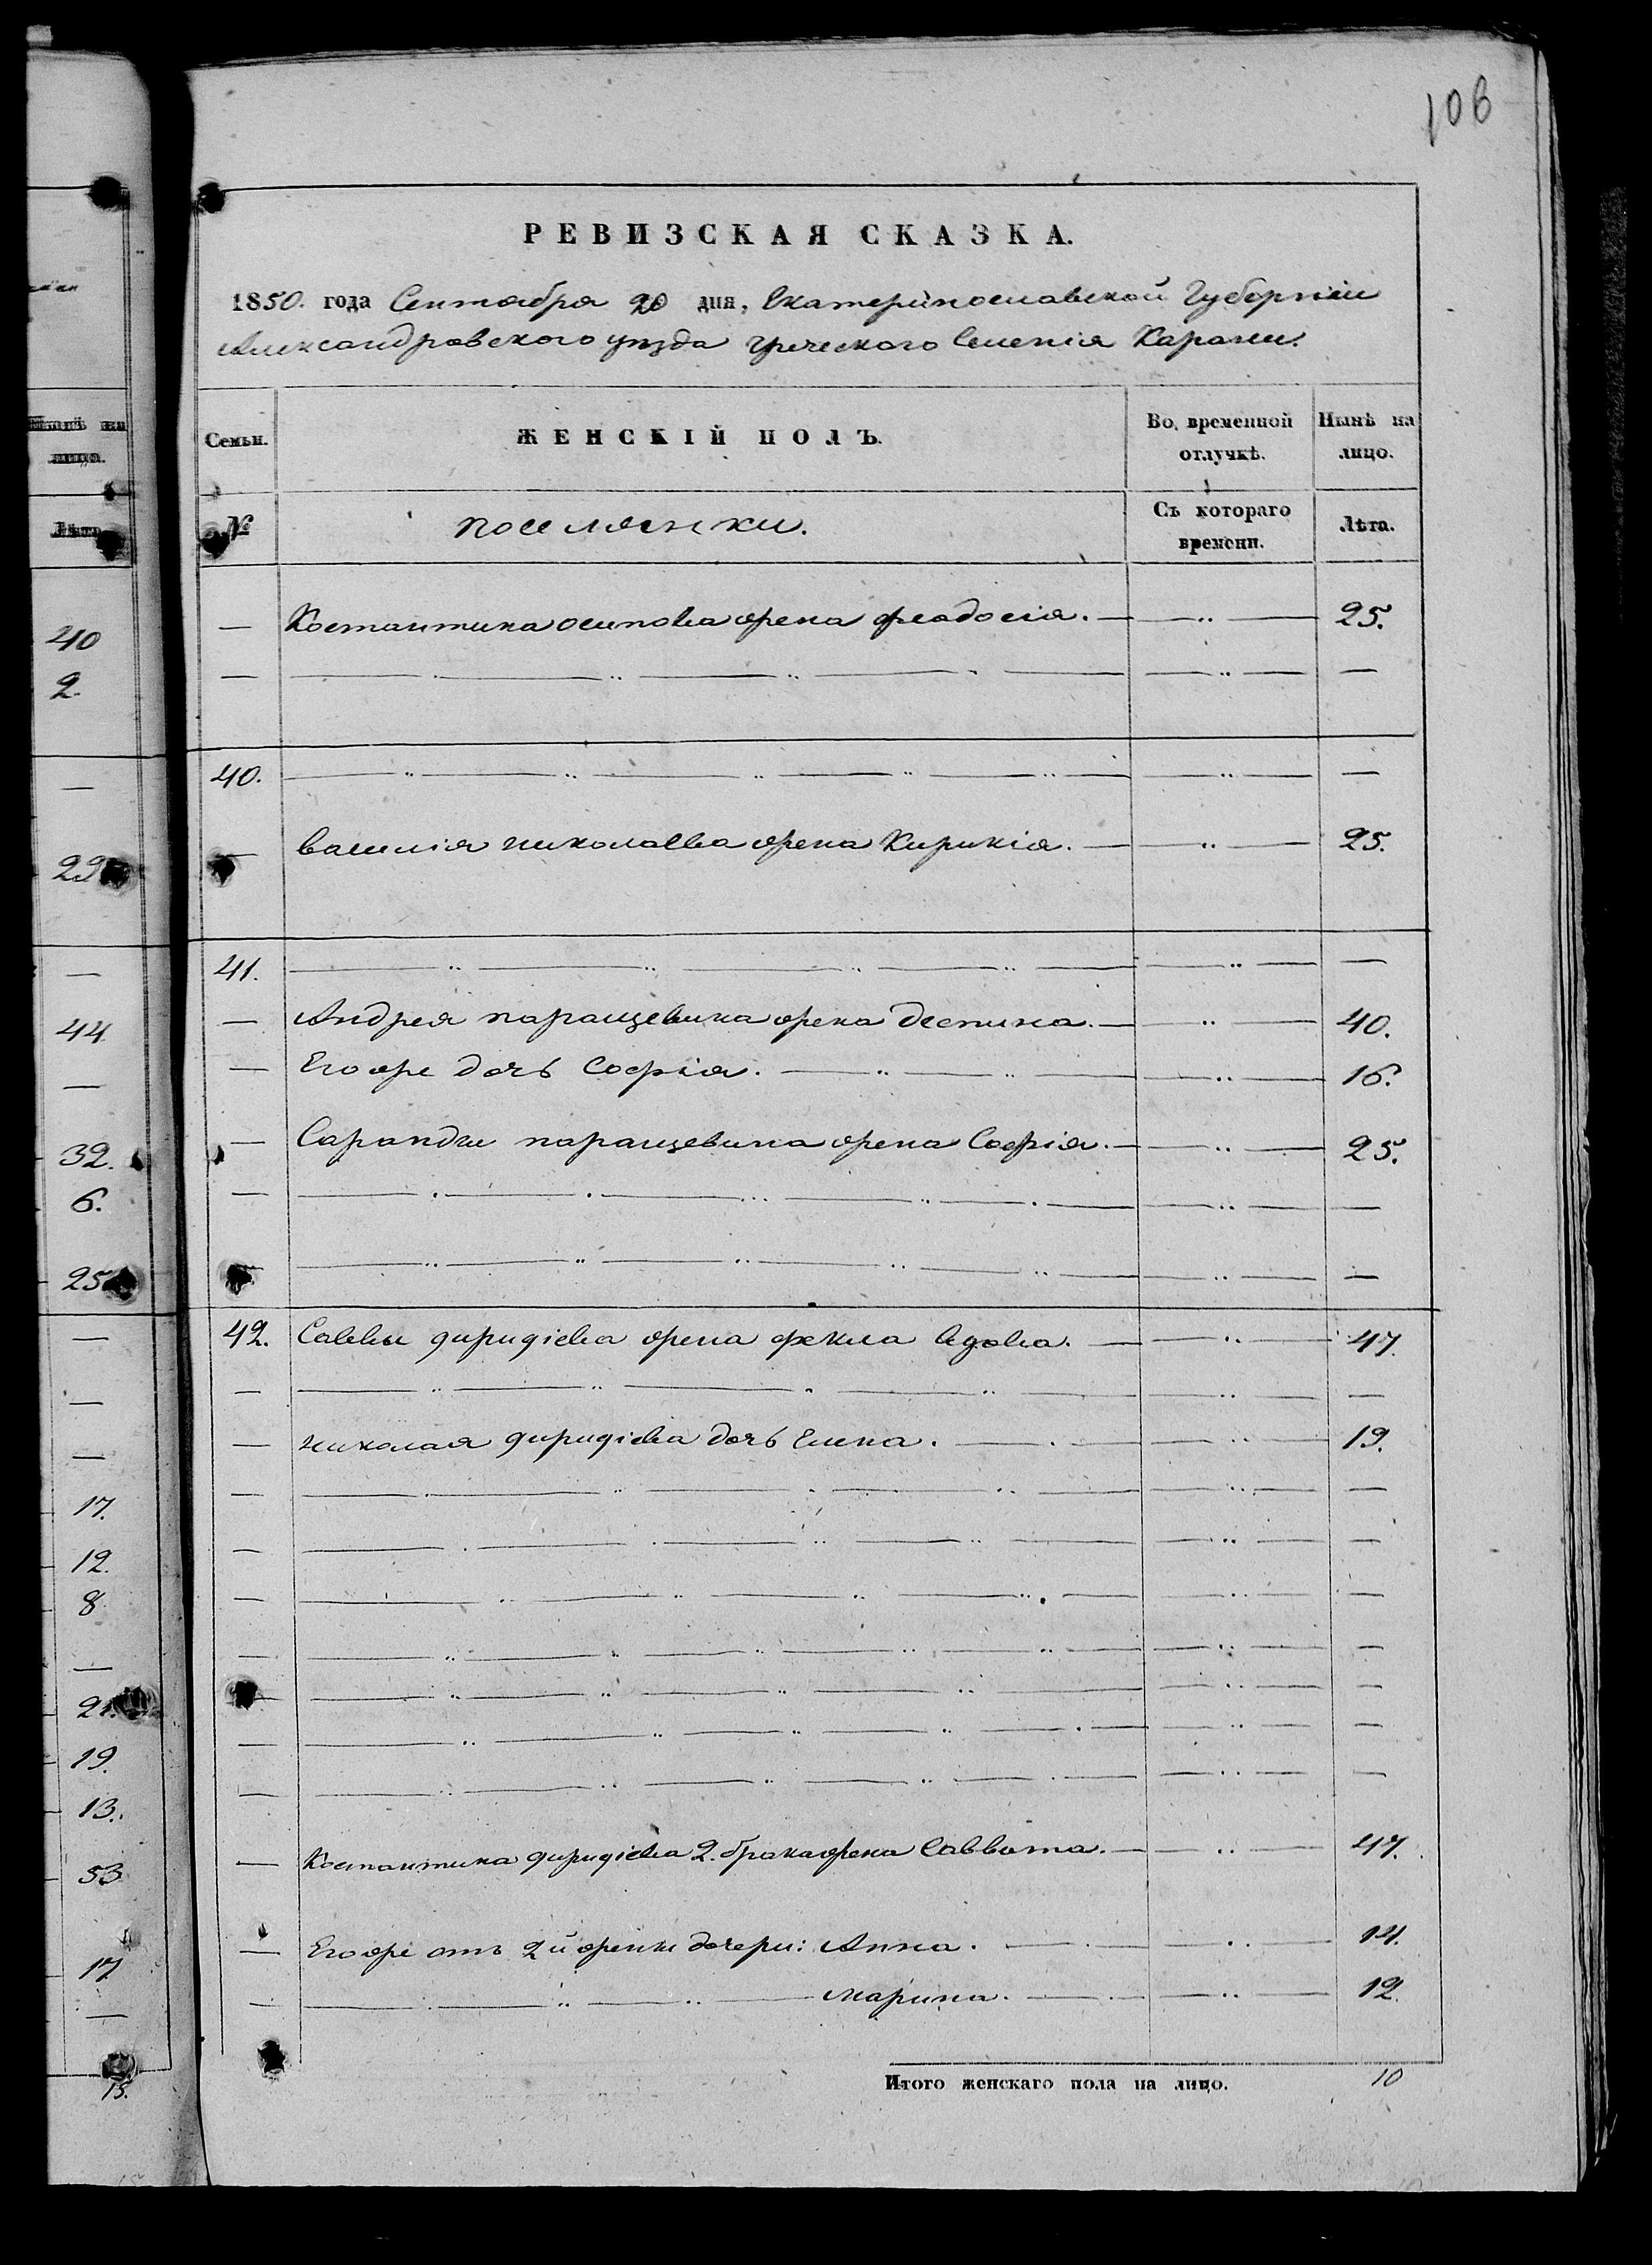 106
РЕВИЗСКАЯ СКАЗКА.
1850. года Сентября 20 дня, Екатеринославской Губерніи
Александровского уѣзда греческого Селенія Карани.
Семьи.
ЖЕНСКІЙ ПОЛЪ.
Во временной отлучкѣ.
Нынѣ на лицо.
№
поселянки.
Съ котораго времени.
Лѣта.
— Костантина осипова жена феодосія. — 25.
40.
— василія николаева жена Кирикія. — 25.
41.
— Андрея паращевина жена деспина. — 40.
— Его же дочь Софія. — 16.
— Саранди паращевина жена Софія. — 25.
42. Саввы дириді­ева жена фекла вдова. — 47.
— николая диридіева дочь Елена. — 19.
— Костантина диридіева 2. брака жена Саввата. — 47.
— Его же отъ 2й жены дочери: Анна. — 14.
— марина. — 12.
Итого женскаго пола на лицо. 10
40
2.
—
29
—
44
—
32.
6.
25
—
—
—
17.
12.
8
—
21.
19.
13.
53
17
—
15.